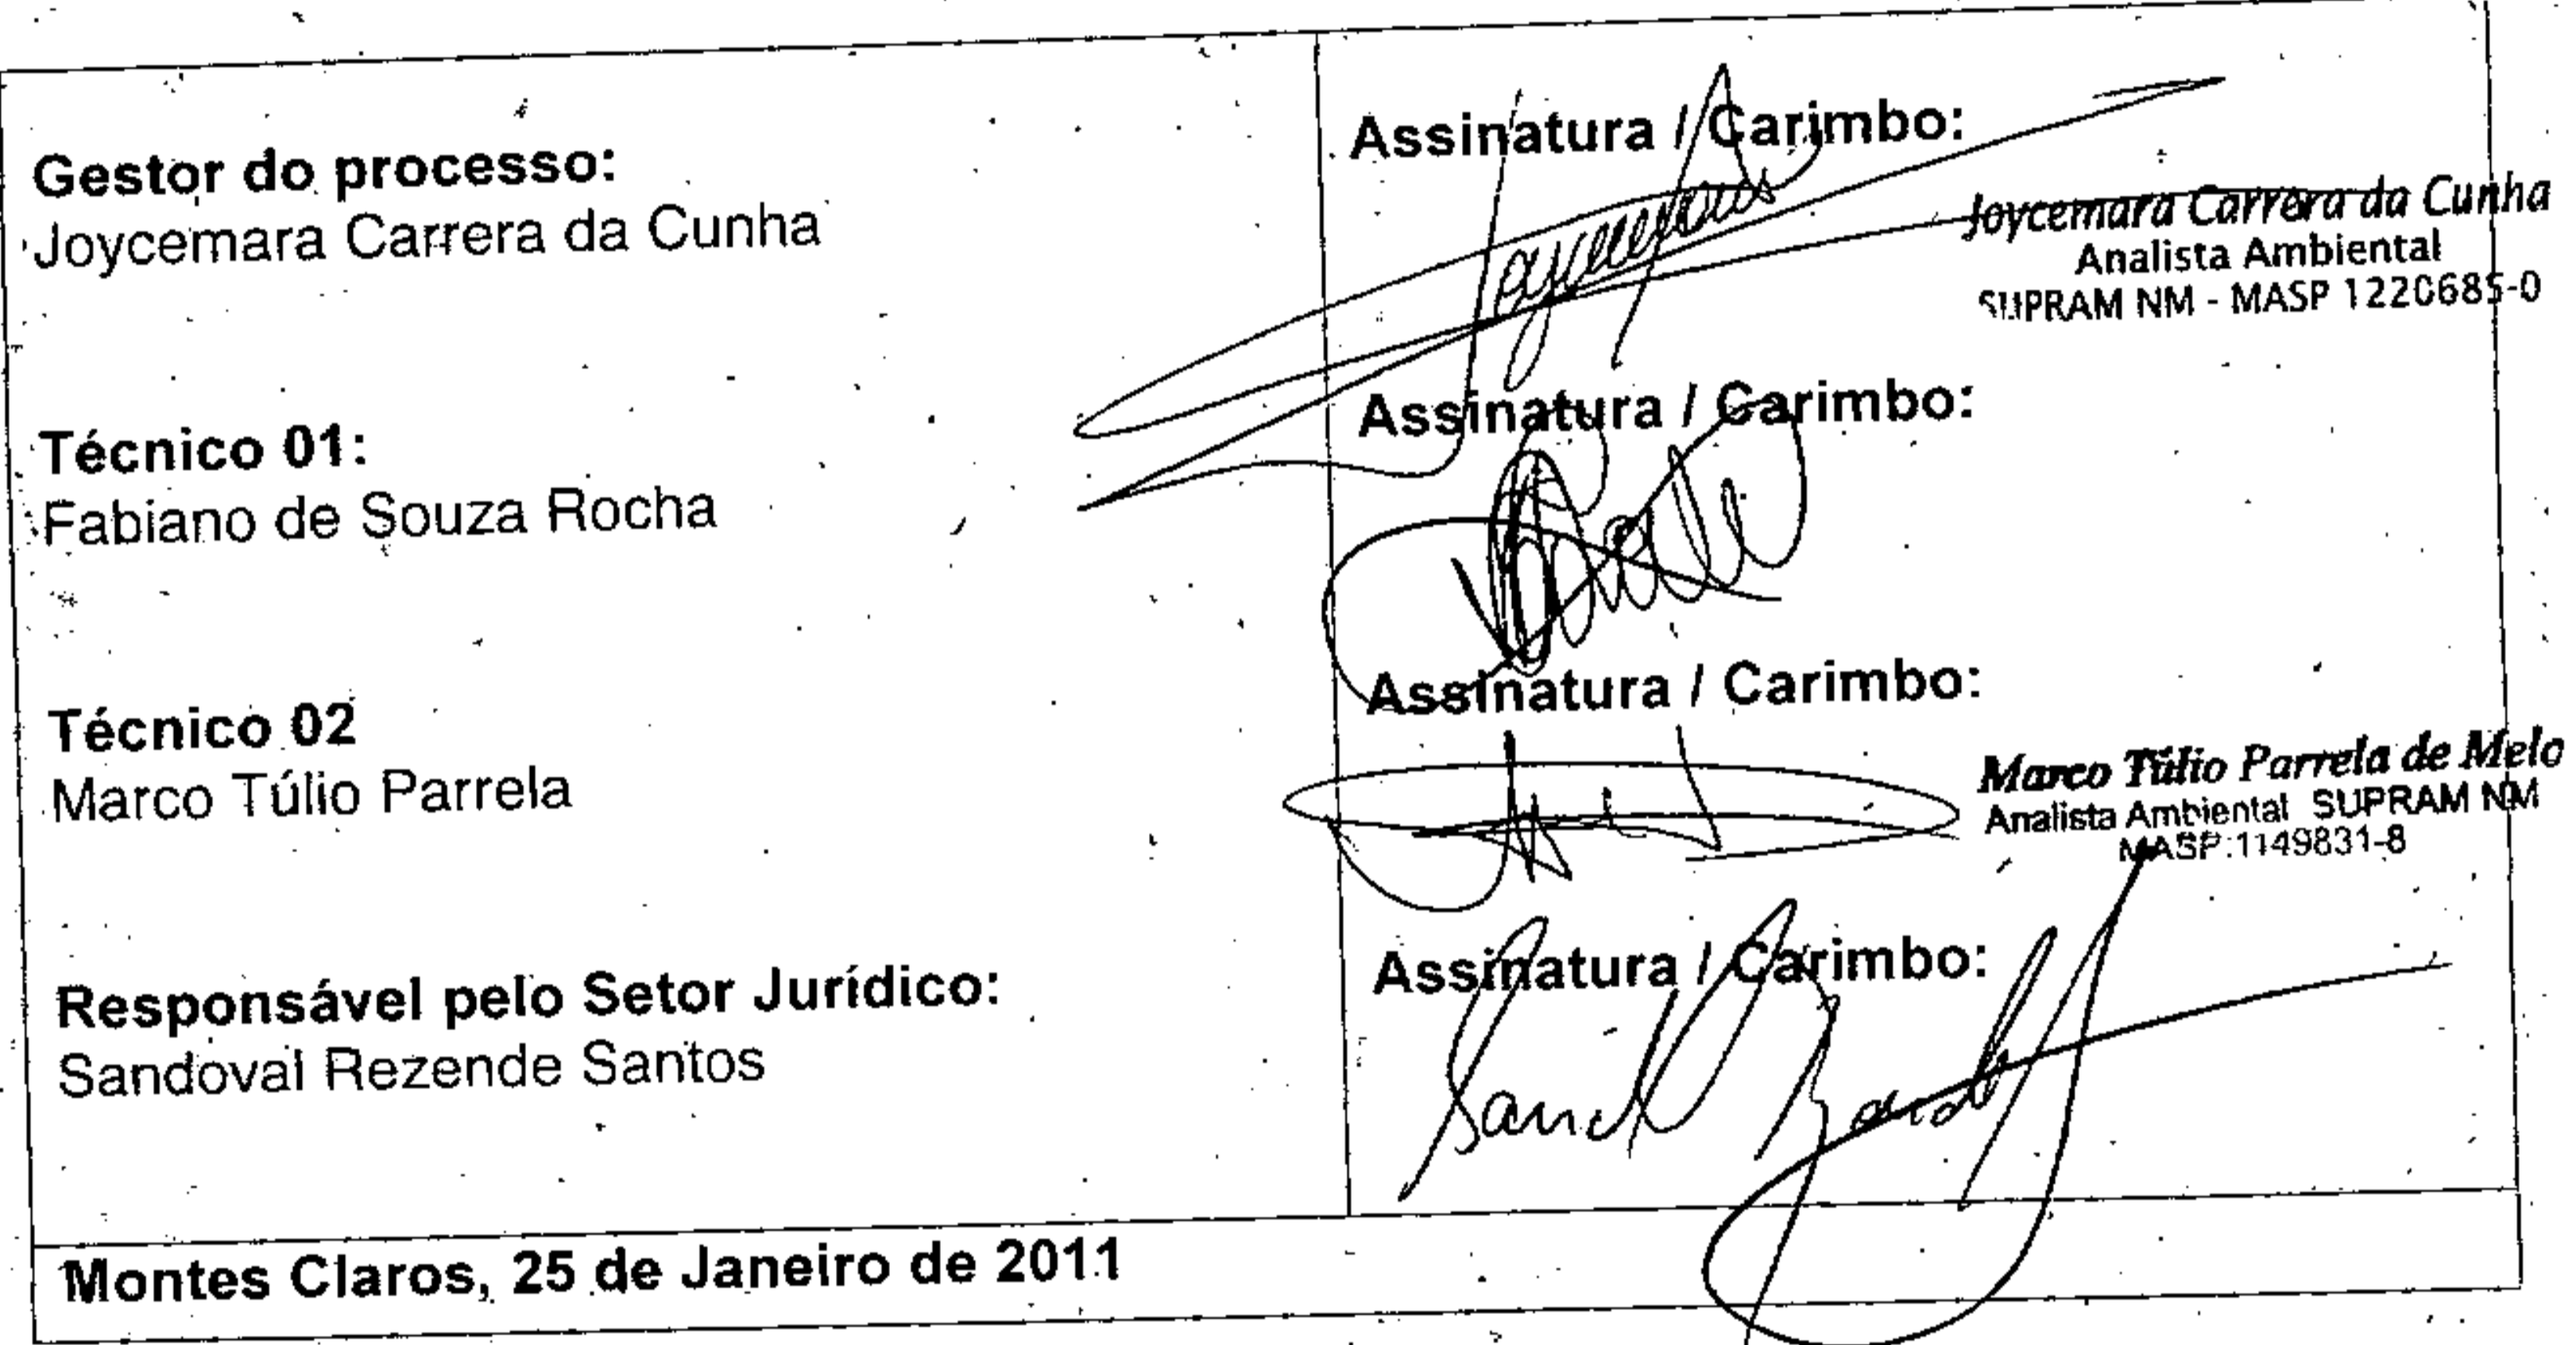 Gestor do processo:
Joycemara Carrera da Cunha
Assinatura / Carimbo:
Joycemara Carrera da Cunha
Analista Ambiental
SUPRAM NM - MASP 1220685-0
Técnico 01:
Fabiano de Souza Rocha
Assinatura / Carimbo:
Técnico 02
Marco Túlio Parrela
Assinatura / Carimbo:
Marco Túlio Parrela de Melo
Analista Ambiental SUPRAM NM
MASP:1149831-8
Responsável pelo Setor Jurídico:
Sandoval Rezende Santos
Assinatura / Carimbo:
Montes Claros, 25 de Janeiro de 2011